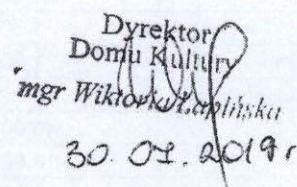 Dyrektor
Domu Kultury
mgr Wiktoria Łapińska
30.01.2019 r